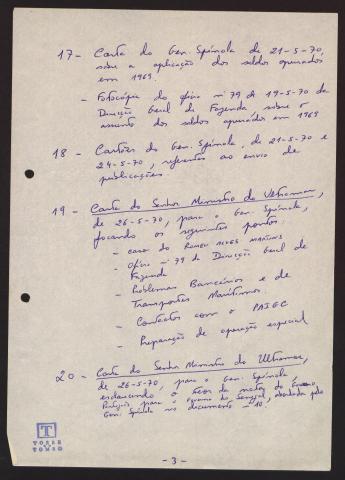 17 - Carta do Gen. Spínola de 21-5-70,
sobre a aplicação dos saldos apurados
em 1969.
- Fotocópia do ofício nº 79 de 19-5-70 da
Direcção Geral de Fazenda sobre o
assunto dos saldos apurados em 1969
18 - Cartões do Gen. Spínola, de 21-5-70 e
24-5-70, referentes ao envio de
publicações
19 - Carta do Senhor Ministro do Ultramar,
de 26-5-70, para o Gen. Spínola,
focando os seguintes pontos:
- caso do ALVES MARTINS
- Ofício nº 79 da Direcção Geral de
Fazenda
- Problemas Bancários e de
Transportes Marítimos.
- Contactos com o PAIGC
- Preparação de operação especial
20 - Carta do Senhor Ministro do Ultramar,
de 26-5-70, para o Gen. Spínola,
esclarecendo o teor da notas do Governo
Português para o Governo do Senegal, abordada pelo
Gen. Spínola no documento nº 10.
T
TORRE
DO
TOMBO
- 3 -